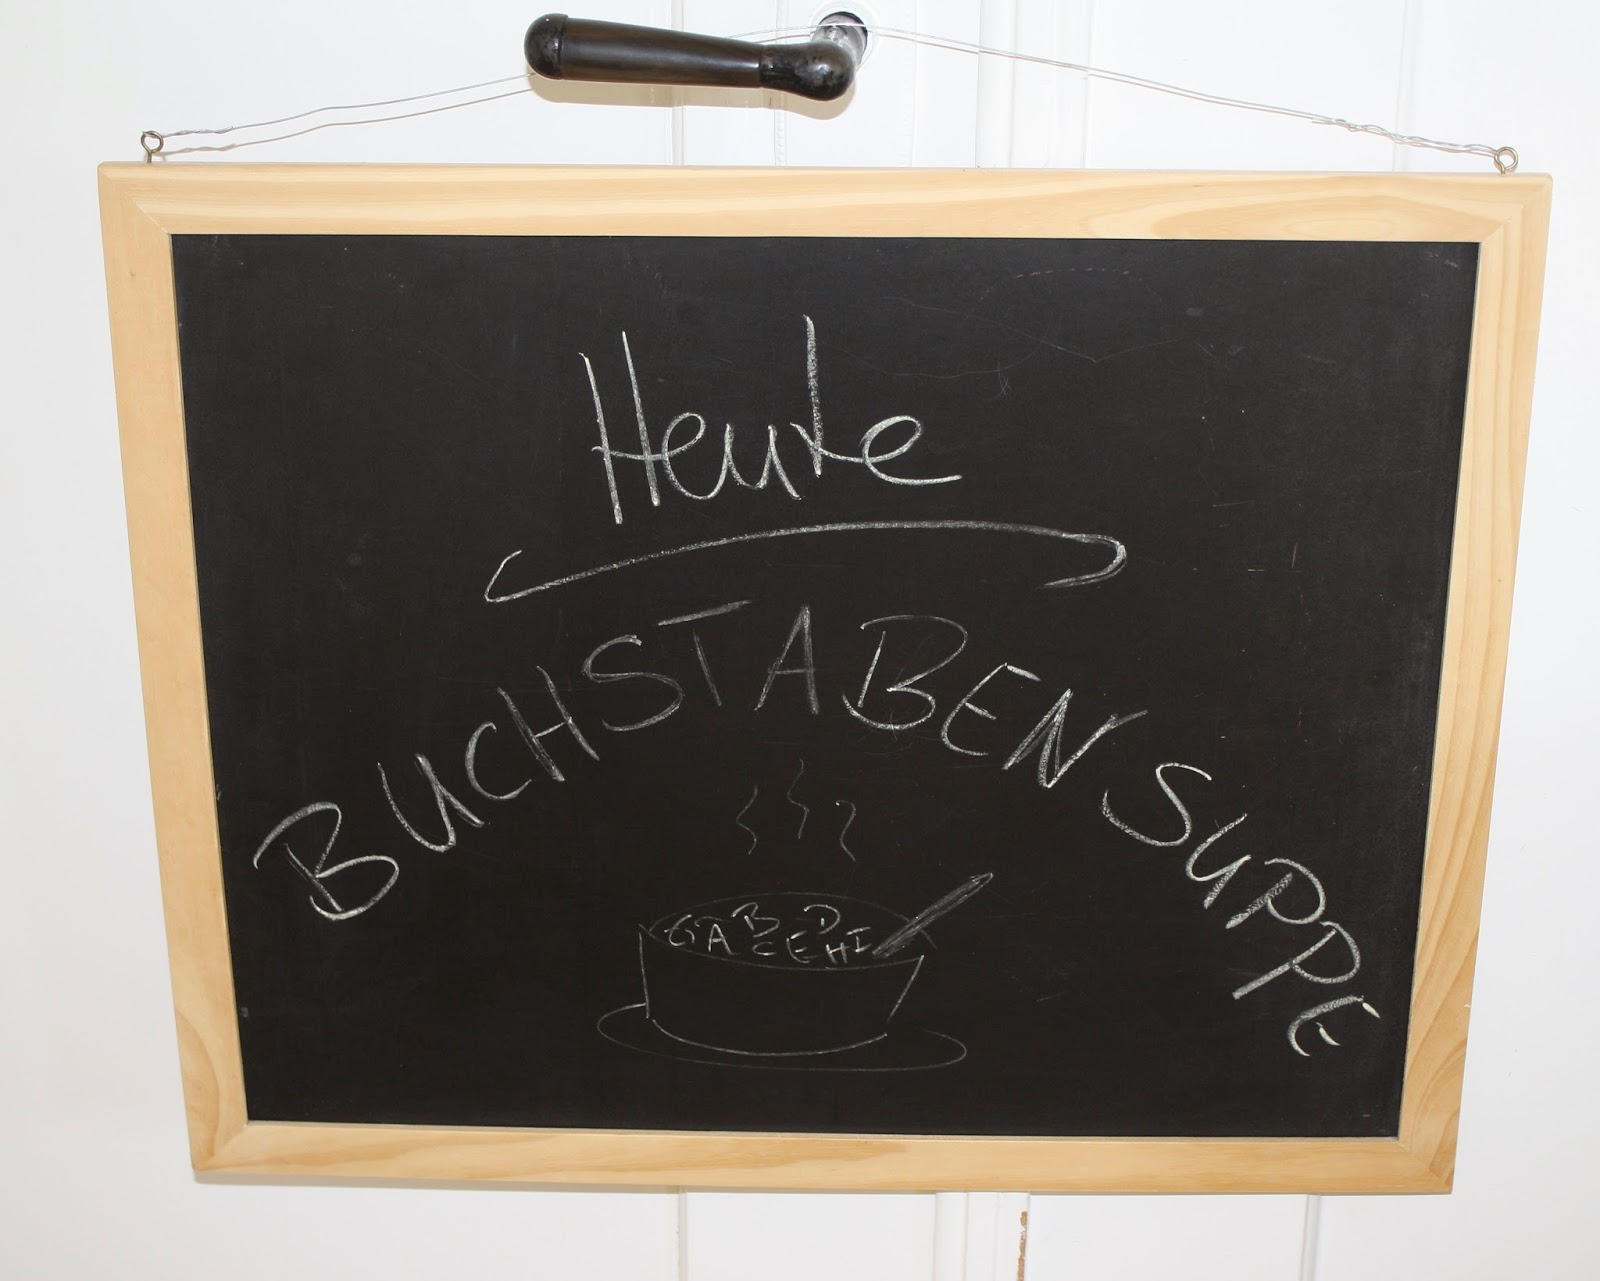 Heute
BUCHSTABENSUPPE
GABCDEHI